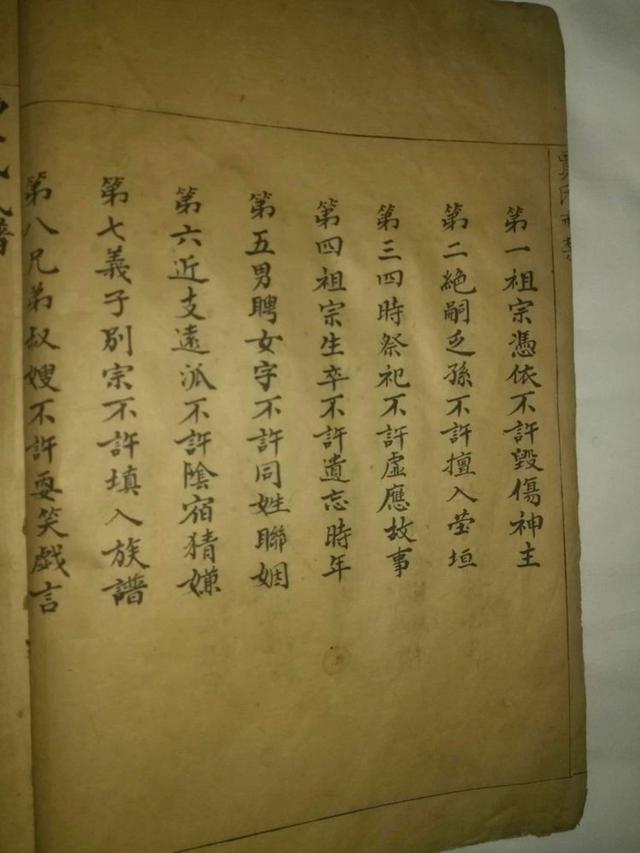 第一祖宗憑依不許毀傷神主
第二絕嗣乏孫不許擅入塋垣
第三四時祭祀不許虛應故事
第四祖宗生卒不許遺忘時年
第五男聘女字不許同姓聯姻
第六近支遠派不許陰宿猜嫌
第七義子別宗不許填入族譜
第八兄弟叔嫂不許耍笑戲言